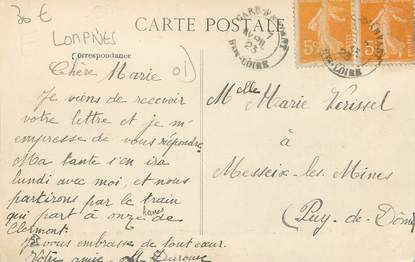 30 €
LOMPNES
01
CARTE POSTALE
Correspondance
Chère Marie
Je viens de recevoir
votre lettre et je m'
empresse de vous répondre
Ma tante s'en ira
lundi avec moi, et nous
partirons par le train
qui part à onze heures de
Clermont.
Je vous embrasse de tout cœur.
Votre amie
Melle Marie Verissel
à
Messeix-les-Mines
(Puy-de-Dôme)
5c
5c
AVRIL
23